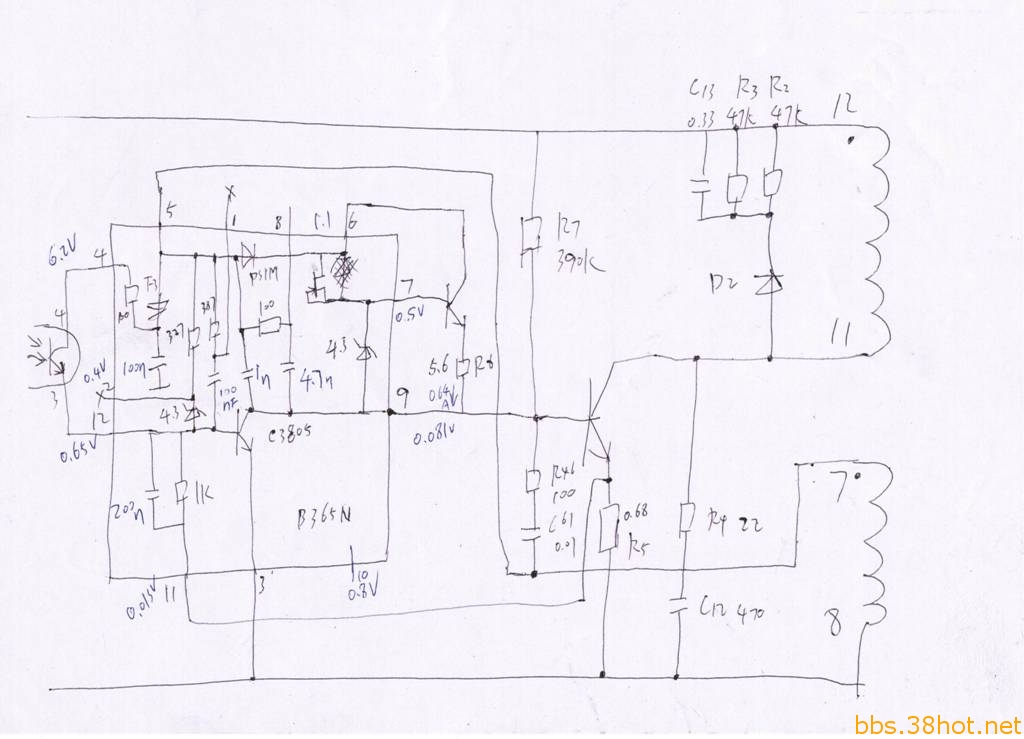 C13 R3 R2
0.33 47K 47K
12
5
1
8
6
6.2V
4
D51M
R7
390K
D2
100
7
0.5V
11
4
100n
43
5.6 R8
1n
4.7n
0.4V
2
12
43
100
nF
3
9
0.64
0.65V
C3805
0.081V
R46
100
1K
C61
0.01
0.68
R5
R4 22
7
B365N
10
0.8V
0.015V
11
3
C12 470
8
bbs.38hot.net